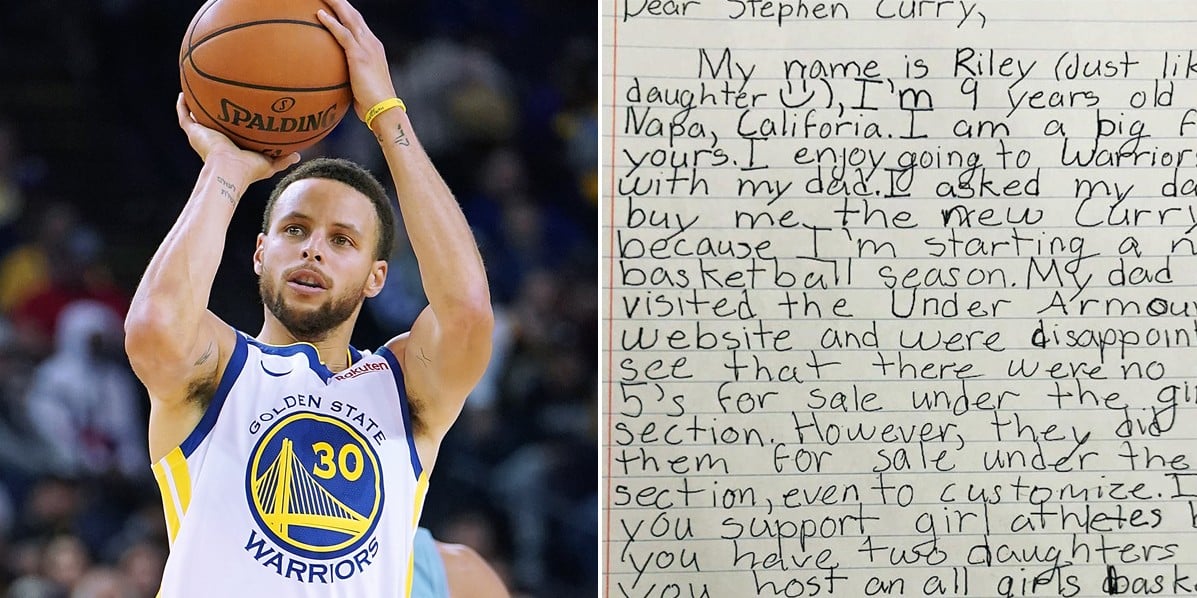 SPALDING
Rakuten
GOLDEN STATE
30
WARRIORS
Dear Stephen Curry,
My name is Riley (Just lik
daughter ☺), I'm 9 years old
Napa, Califoria. I am a big f
yours. I enjoy going to Warrior
with my dad. I asked my da
buy me the new Curry
because I'm starting a n
basketball season. My dad
visited the Under Armou
website and were disappoin
see that there were no
5's for sale under the gi
section. However, they did
them for sale under the
section, even to customize. I
you support girl athletes
you have two daughters
you host an all girls bask